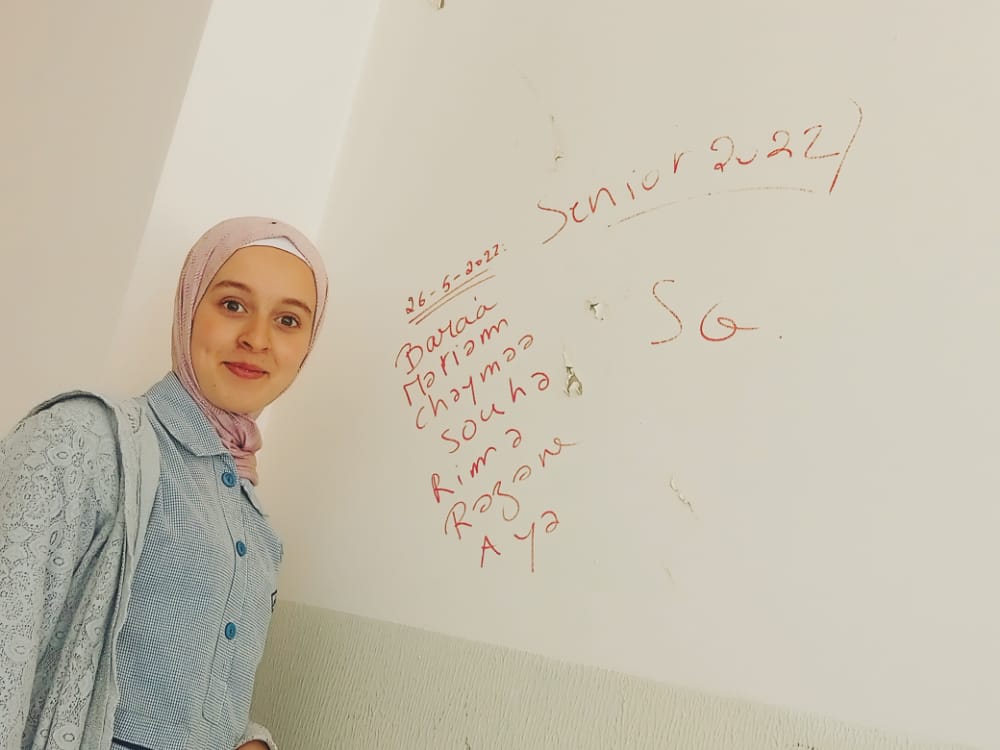 Senior 2022
26-5-2022.
Baraà
Mariam
Chaymaa
Souha
Rima
Razane
Aya
SG.